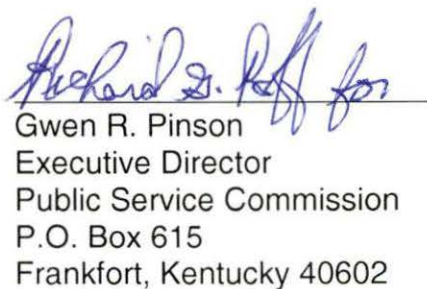 Richard G. Raff for
Gwen R. Pinson
Executive Director
Public Service Commission
P.O. Box 615
Frankfort, Kentucky 40602